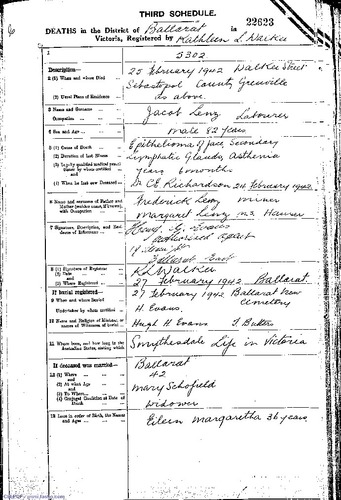 THIRD SCHEDULE.
22623
DEATHS in the District of Ballarat in
Victoria, Registered by Kathleen L Walker
1
5302
Description—
2 (1) When and where Died
25 February 1942 Walker Street
Sebastopol County Grenville
(2) Usual Place of Residence
as above
3 Name and Surname
Occupation
Jacob Lenz Labourer
4 Sex and Age
male 82 years
5 (1) Cause of Death
Epithelioma of face, Secondary
(2) Duration of last Illness
Lymphatic Glands, Asthenia
years 6 months
(4) When he last saw Deceased
C E Richardson 24 February 1942
6 Name and surname of Father and Mother
with Occupation
Frederick Lenz miner
Margaret Lenz m.s.
7 Signature, Description, and Residence of Informant
Evans
Authorised agent
Ballarat East
8 (1) Signature of Registrar
K L Walker
(2) Date
(3) Where Registered
27 February 1942 Ballarat
If burial registered—
9 When and where Buried
27 February 1942 Ballarat New
Cemetery
Undertaker by whom certified
H. Evans
10 Name and Religion of Minister, or names of Witnesses of burial
Hugh H Evans
11 Where born, and how long in the Australian States, stating which
Smythesdale Life in Victoria
If deceased was married—
12 (1) Where
Ballarat
(2) At what Age
42
(3) To Whom
Mary Schofield
(4) Conjugal Condition at Date of Death
Widower
13 Issue in order of Birth, the Names and Ages
Eileen Margaretha 36 years